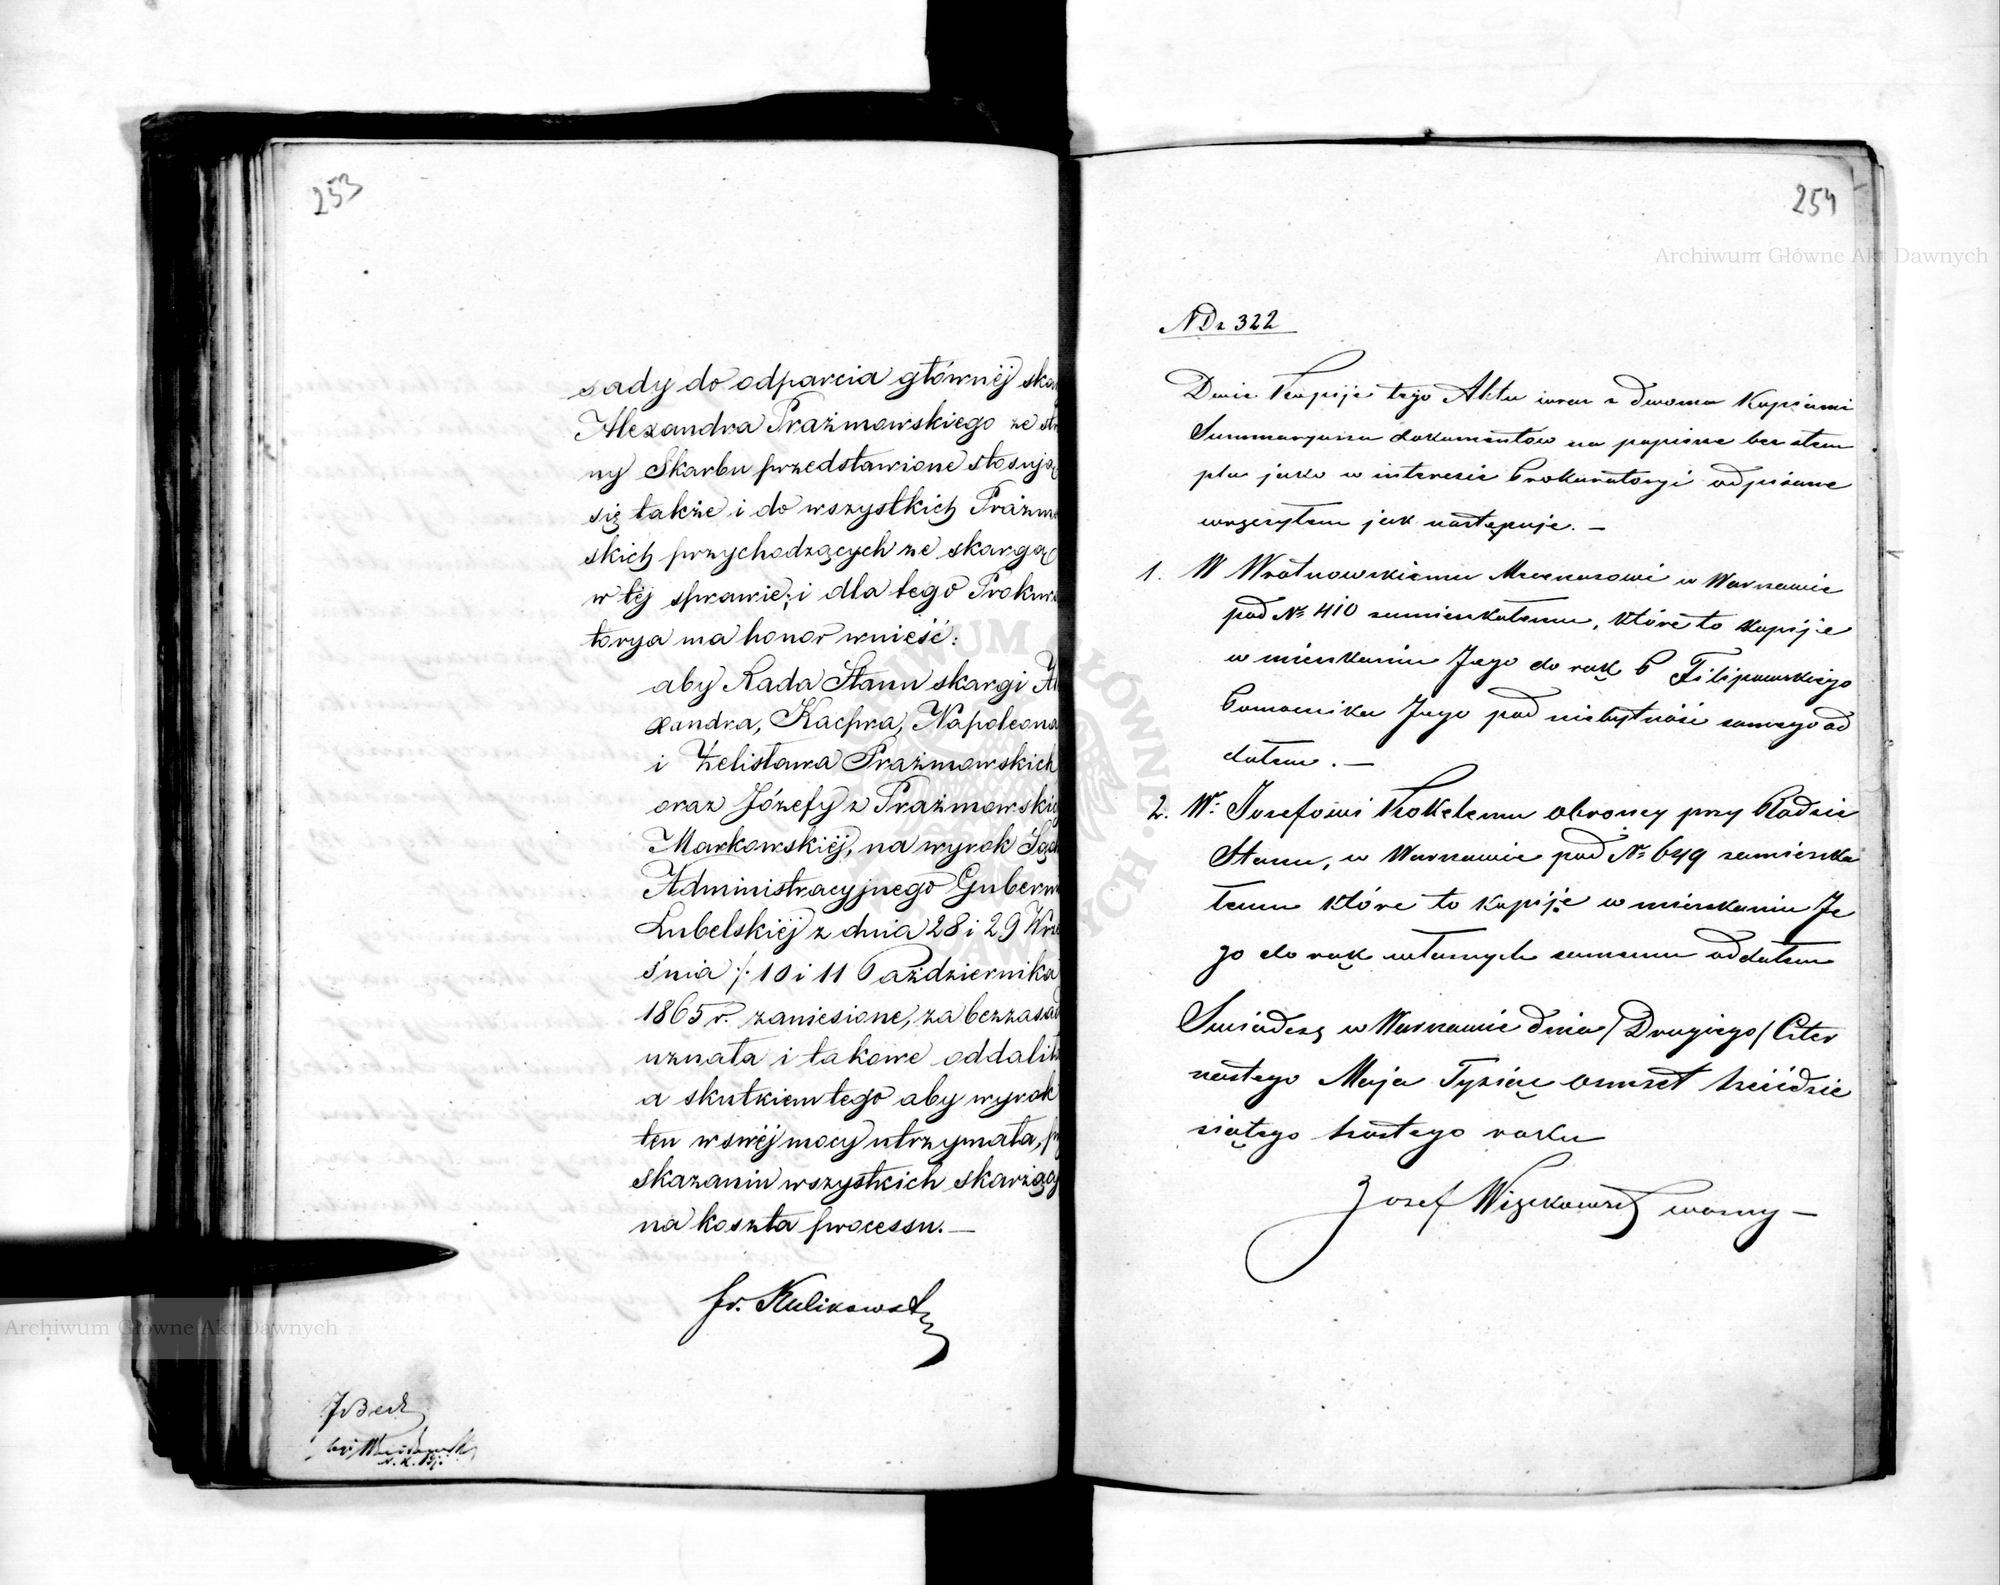 253
sady do odparcia głównéj ska
Alexandra Prażmowskiego ze str
ny Skarbu przedstawione stosują
się także i do wszystkich Prażmo
skich przychodzących ze skargą
w téj sprawie; i dla tego Prokura
torya ma honor wnieść:
aby Rada Stanu skargi Al
xandra, Kacpra, Napoleona
i Żelisława Prażmowskich
oraz Józefy z Prażmowskic
Markowskiéj, na wyrok Sąd
Administracyjnego Gubern
Lubelskiéj z dnia 28 i 29 Wrze
śnia /: 10 i 11 Października
1865 r. zaniesione, za bezzasad
uznała i takowe oddalił
a skutkiem tego aby wyrok
ten w swéj mocy utrzymała, pr
skazaniu wszystkich skarżący
na koszta processu. —
Fr. Kulikowski
JBeck
254
Archiwum Główne Akt Dawnych
ND 322
Dwie Kopije tego Aktu wraz z dwoma Kopiami
Summaryusza dokumentów na papierze bez stem
pla jako w interesie Prokuratoryi odpisane
wręczyłem jak następuje. —
1. W Wrotnowskiemu Mecenasowi w Warszawie
pod № 410 zamieszkałemu, które to kopije
w mieszkaniu Jego do rąk P Filipowskiego
Pomocnika Jego pod niebytność samego od
dałem. —
2. W: Jozefowi Kokelemu obroncy przy Radzie
Stanu, w Warszawie pod № 649 zamieszka
łemu które to kopije w mieszkaniu Je
go do rąk własnych samemu oddałem
Swiadczę w Warszawie dnia /Drugiego/ Czter
nastego Maja Tysiąc osmset sześćdzie
siątego szostego roku
Jozef Więckowski woźny —
Archiwum Główne Akt Dawnych